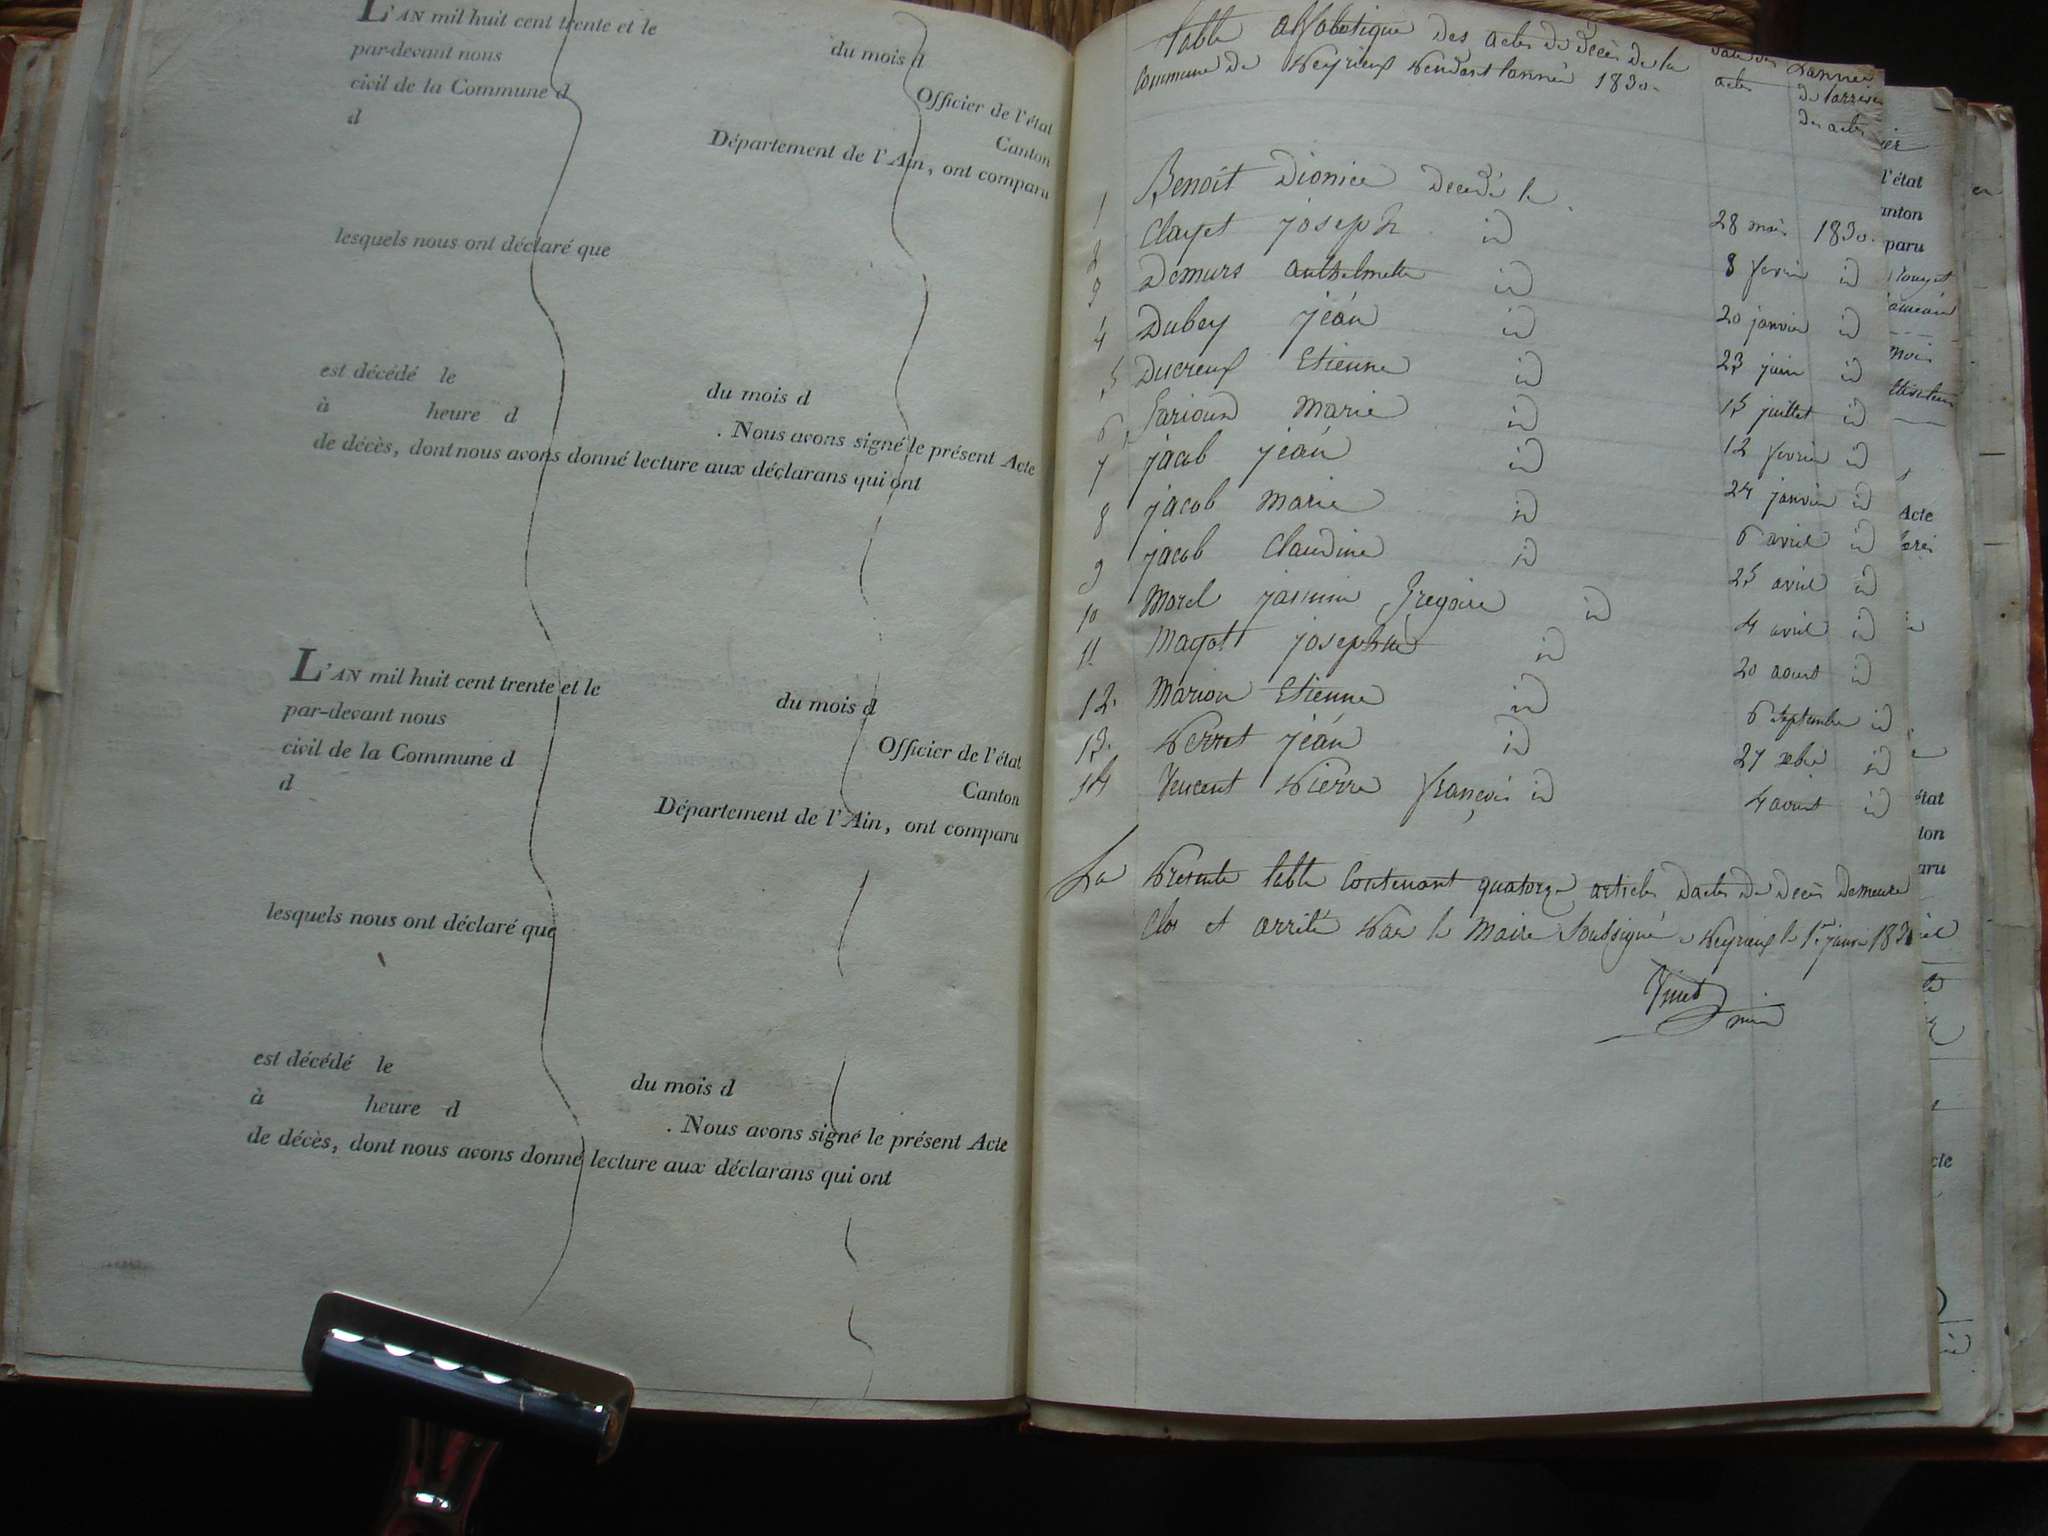 L'AN mil huit cent trente et le
du mois d
par-devant nous
Officier de l'état
civil de la Commune d
Canton
d
Département de l'Ain, ont comparu
lesquels nous ont déclaré que
est décédé le
du mois d
à heure d
. Nous avons signé le présent Acte
de décès, dont nous avons donné lecture aux déclarans qui ont
L'AN mil huit cent trente et le
du mois d
par-devant nous
Officier de l'état
civil de la Commune d
Canton
d
Département de l'Ain, ont comparu
lesquels nous ont déclaré que
est décédé le
du mois d
à heure d
. Nous avons signé le présent Acte
de décès, dont nous avons donné lecture aux déclarans qui ont
table alfabetique des actes de Decès de la
commune de Peyrieux pendant lannée 1830.
actes
Lannée
des actes
1 Benoit Dionice décédé le 28 mai 1830.
2 Clayet joseph id 8 fevrié id
3 Demurs anthelmette id 20 janvié id
4 Dubey jéan id 23 juin id
5 Ducreux Etienne id 15 juillet id
6 Marie id 12 fevrié id
7 jacob jéan id 24 janvié id
8 jacob Marie id 6 avril id
9 jacob Claudine id 25 avril id
10 Morel Gregoire id 4 avril id
11 Mayot id 20 aoust id
12. Marion Etienne id 6 septembre id
13. Perret jéan id 27 xbre id
14 Vincent Pierre françois id 4 aoust id
La Presente table contenant quatorze articles dactes de Decès Demeure
Clos et arrêté Par le Maire Soussigné a Peyrieux le 1er janvié 1831